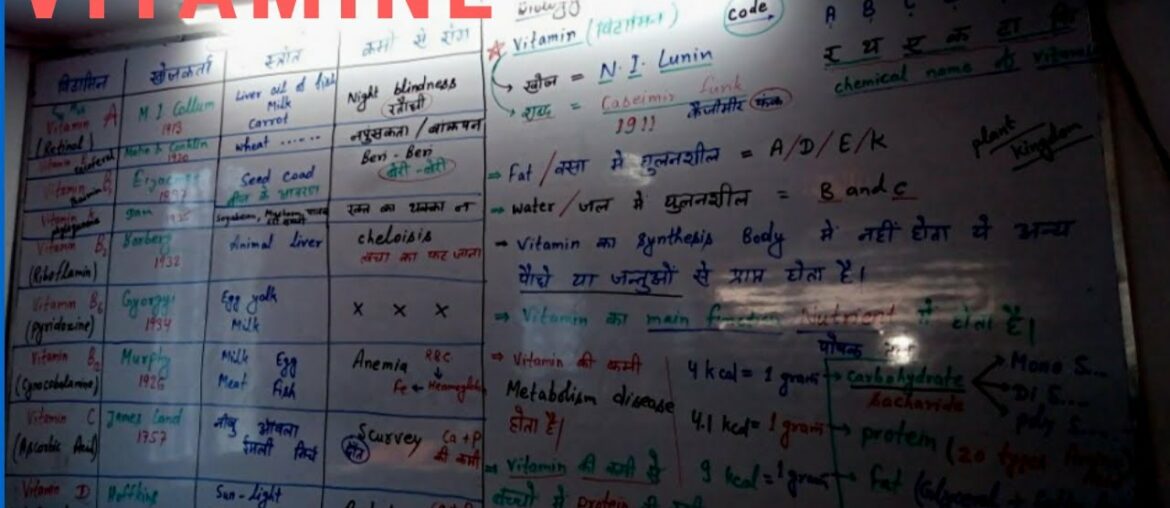 VITAMINE
Biology
code
A B C
विटामिन खोजकर्ता स्त्रोत कमी से रोग
Vitamin A
(Retinol)
M.I. Collum
1913
Liver oil of fish
Milk
Carrot
Night blindness
रतौंधी
Vitamin
1920
wheat ......
नपुंसकता / बांझपन
Vitamin B1
1897
Seed coad
बीज के आवरण
Beri - Beri
बेरी - बेरी
Vitamin K
Dam
Soyabean,
रक्त का थक्का न
Vitamin B2
(Riboflamin)
1932
Animal liver
cheloisis
त्वचा का फट जाना
Vitamin B6
(Pyridoxine)
Gyorgy
1934
Egg yolk
Milk
x x x
Vitamin B12
(Cynocobalamine)
Murphy
1926
Milk Egg
Meat Fish
Anemia RBC
Fe ← Heamoglob
Vitamin C
(Ascorbic Acid)
James Land
1757
नींबू आंवला
ईमली मिर्च
Scurvey Ca + P
की कमी
Vitamin D
Sun-light
Vitamin (विटामिन)
खोज = N. I. Lunin
शब्द = Caseimir funk
1911 कैजीमीर फंक
chemical name of vitamin
plant kingdom
Fat / वसा में घुलनशील = A/D/E/K
water / जल में घुलनशील = B and C
Vitamin का synthesis Body में नहीं होता ये अन्य
पौधे या जन्तुओं से प्राप्त होता है।
Vitamin का main function Nutrient में होता है।
पोषक
Vitamin की कमी
Metabolism disease
होता है।
Vitamin की कमी से
बच्चों में Protein
4 kcal = 1 gram → carbohydrate
Sacharide
Mono S...
Di S...
poly S...
4.1 kcal = 1 gram → protein (20 types
9 kcal = 1 gram → Fat